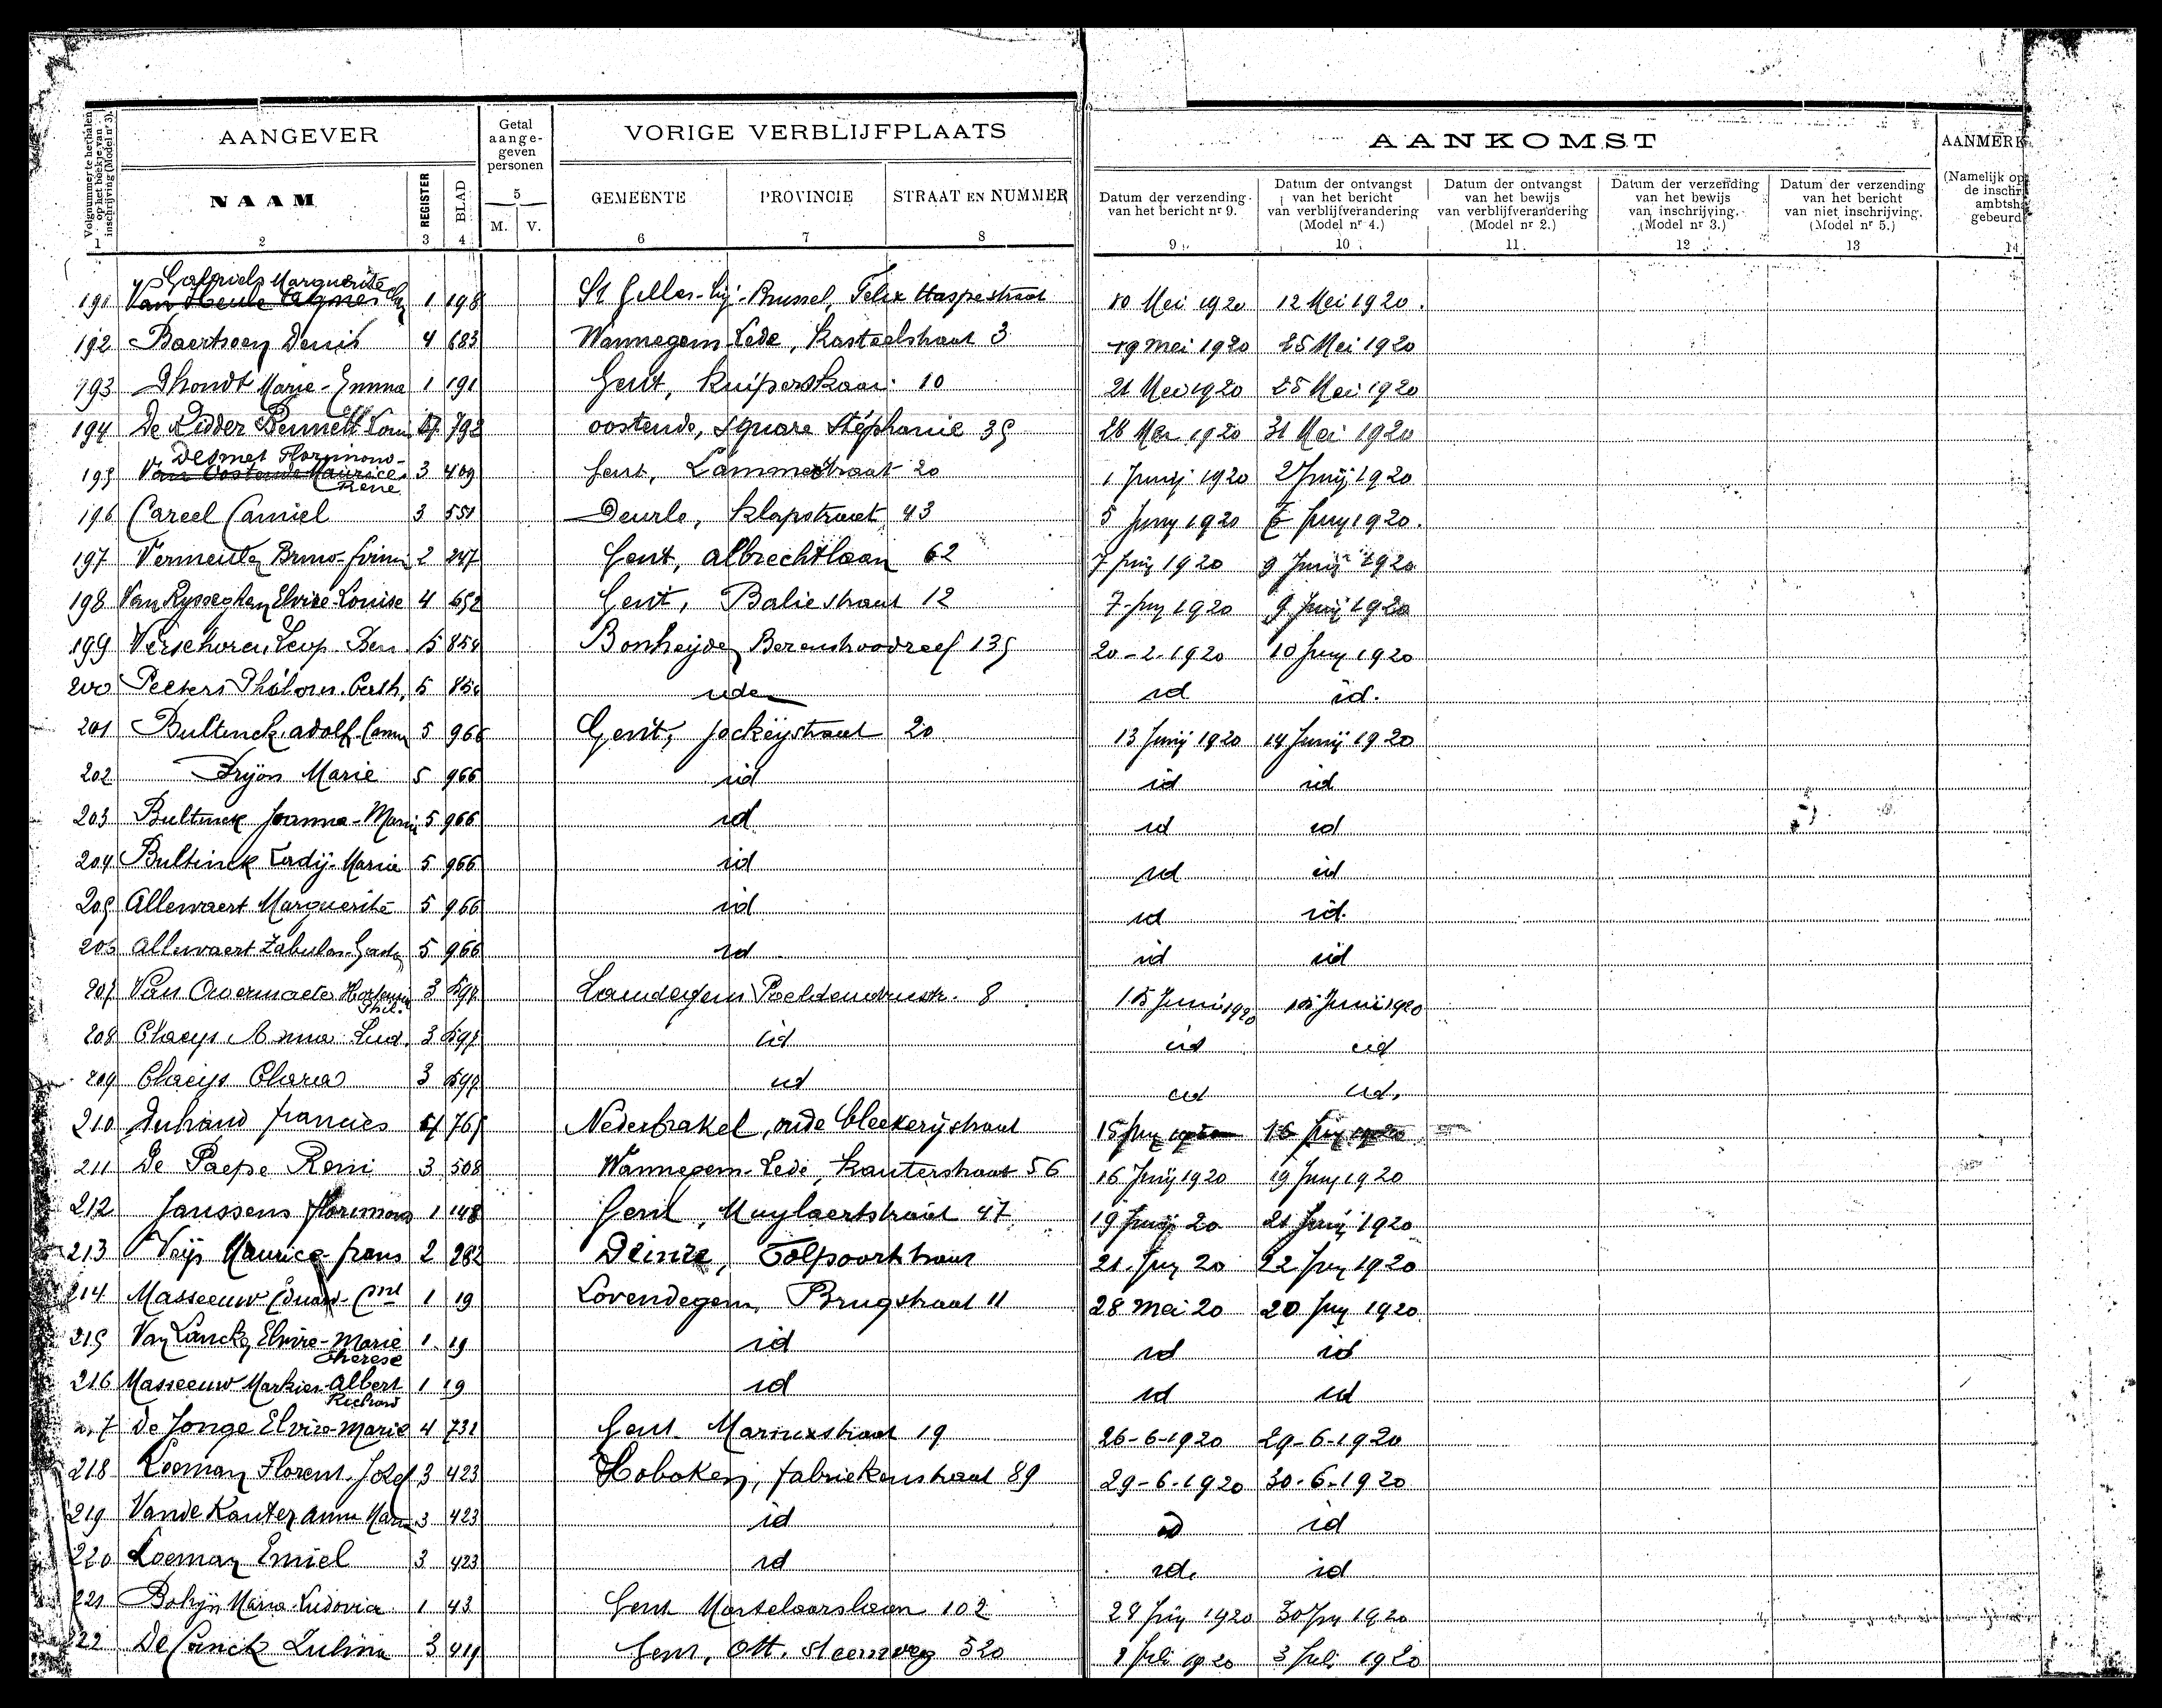 Volgnummer te herhalen op het boekje van inschrijving (Model nr 3).
AANGEVER
Getal aange- geven personen
VORIGE VERBLIJFPLAATS
AANKOMST
AANMERK
NAAM REGISTER BLAD 5 M. V. GEMEENTE PROVINCIE STRAAT EN NUMMER
Datum der verzending van het bericht nr 9.
Datum der ontvangst van het bericht van verblijfverandering (Model nr 4.)
Datum der ontvangst van het bewijs van verblijfverandering (Model nr 2.)
Datum der verzending van het bewijs van inschrijving. (Model nr 3.)
Datum der verzending van het bericht van niet inschrijving. (Model nr 5.)
(Namelijk op de inschr ambtsh gebeurd
1 2 3 4 6 7 8 9 10 11 12 13 14
Gabriels Marguerite
191 1 198 St Gilles-bij-Brussel, Felix 10 Mei 1920 12 Mei 1920.
192 Baertsoen Denis 4 683 Wannegem Lede, Kasteelstraat 3 19 mei 1920 25 Mei 1920
193 Dhondt Marie-Emma 1 191 Gent, Kuiperskaai 10 21 Mei 1920 25 Mei 1920
194 De Ridder Bennett 792 oostende, square Stéphanie 35 28 Mei 1920 31 Mei 1920
Desmet Florimond-
195 Van Oostende Maurice 3 409 Gent, Lammerstraat 20 1 Junij 1920 2 Junij 1920
René
196 Careel Camiel 3 551 Deurle, Klapstraat 43 5 Juny 1920 Juny 1920.
197 Bruno 2 247 Gent, albrechtlaan 62 7 Juny 1920 9 Junij 1920
198 Van Rysseghem Elvire-Louise 4 652 Gent, Baliestraat 12 7 Juny 1920 9 Junij 1920
199 Leop. 5 854 Bonheyden Berenhoodreef 135 20-2-1920 10 Juny 1920
200 Peeters 5 854 idem id id.
201 Bultinck adolf 5 966 Gent, jockeystraat 20 13 Junij 1920 14 Junij 1920
202 Marie 5 966 id id id
203 Bultinck Joanna-Marie 5 966 id id id
204 Bultinck Marie 5 966 id id id
205 Allewaert Marguerite 5 966 id id id.
206 Allewaert 5 966 id id id
207 Van Overmaete 3 597 Landegem 8 15 Junij 1920 Junij 1920
208 Claeys Anna Lud. 3 597 id id id
209 Claeys Clara 3 597 id id id.
210 Francies 765 Nederbrakel, oude bleekerijstraat 15 Juny 16 Juny
211 De Paepe Remi 3 508 Wannegem-Lede, Kauterstraat 56 16 Junij 1920 19 Juny 1920
212 Janssens Florimond 1 148 Gent, Muylaertstraat 47 19 Junij 20 21 Junij 1920
213 Maurice-frans 2 282 Deinze, Tolpoortstraat 21 Juny 20 22 Juny 1920
214 Masseeuw 1 19 Lovendegem, Brugstraat 11 28 Mei 20 20 Juny 1920
215 Van Elvire-Marie 1 19 id id id
Therese
216 Masseeuw Albert 1 19 id id id
Richard
217 De Jonge Elvire-Marie 4 731 Gent 19 26-6-1920 29-6-1920
218 Florent Jozef 3 423 Hoboken, fabriekenstraat 89 29-6-1920 30-6-1920
219 Vande Kauter anna 3 423 id id id
220 Emiel 3 423 id id. id
221 Maria Ludovica 1 43 Gent 102 29 Juny 1920 30 Juny 1920
222 3 419 Gent, Ott. steenweg 520 Juli 1920 3 Juli 1920